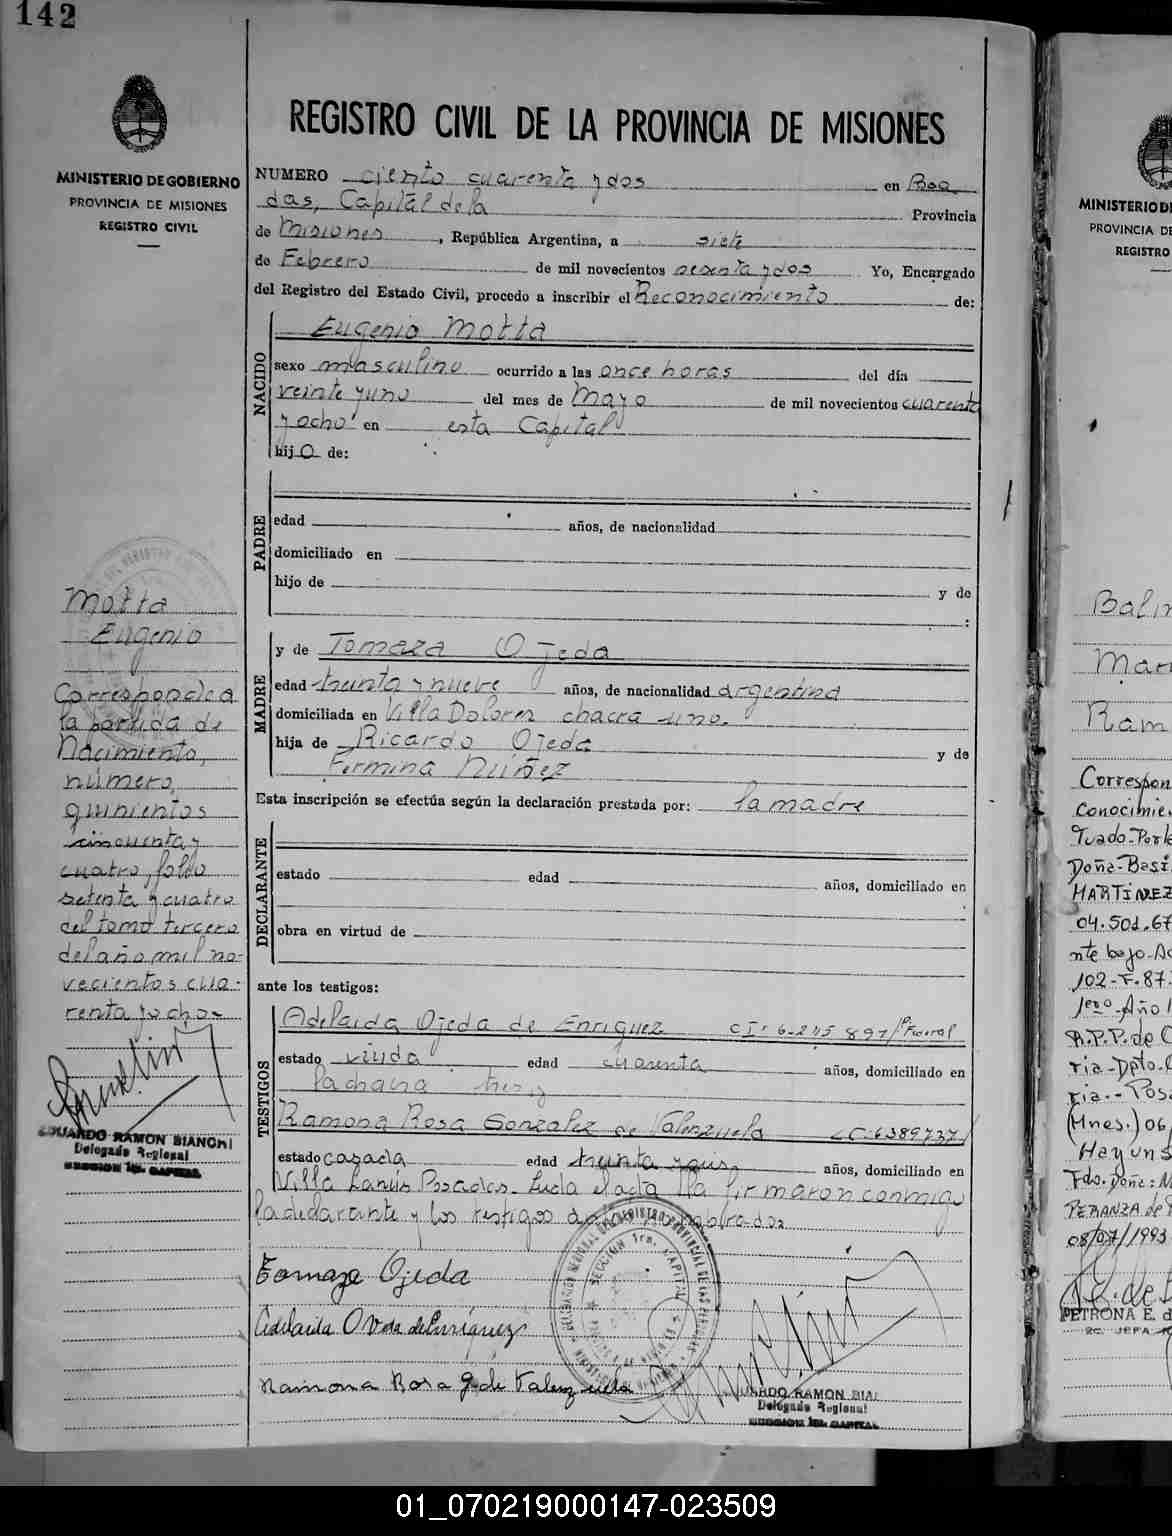 142
MINISTERIO DE GOBIERNO
PROVINCIA DE MISIONES
REGISTRO CIVIL
REGISTRO CIVIL DE LA PROVINCIA DE MISIONES
NUMERO ciento cuarenta y dos en Posa
das, Capital de la Provincia
de Misiones, República Argentina, a siete
de Febrero de mil novecientos sesenta y dos Yo, Encargado
del Registro del Estado Civil, procedo a inscribir el Reconocimiento de:
NACIDO
Eugenio Motta
sexo masculino ocurrido a las once horas del día
veinte y uno del mes de Mayo de mil novecientos cuarenta
y ocho en esta Capital
hijo de:
PADRE
edad años, de nacionalidad
domiciliado en
hijo de y de
:
MADRE
y de Tomaza Ojeda
edad treinta y nueve años, de nacionalidad argentina
domiciliada en Villa Dolores chacra uno.
hija de Ricardo Ojeda y de
Fermina Nuñez
Esta inscripción se efectúa según la declaración prestada por: la madre
DECLARANTE
estado edad años, domiciliado en
obra en virtud de
ante los testigos:
TESTIGOS
Adelaida Ojeda de Enriquez C.I. 6-245 897 P. Federal
estado viuda edad cuarenta años, domiciliado en
la chacra tres y
Ramona Rosa Gonzalez de Valenzuela L.C. 6389737
estado casada edad treinta y seis años, domiciliado en
Villa Lanús Posadas. Leida el acta la firmaron conmigo
la declarante y los testigos
Tomaza Ojeda
Adelaida O Vda de Enriquez
Ramona Rosa G. de Valenzuela
SECCION 1ra. CAPITAL
EDUARDO RAMON BIAN
Delegado Regional
SECCION 1ra. CAPITAL
Motta
Eugenio
Corresponde a
la partida de
Nacimiento,
número,
quinientos
cincuenta y
cuatro, folio
setenta y cuatro
del tomo tercero
del año mil no-
vecientos cua-
renta y ocho-
EDUARDO RAMON BIANCHI
Delegado Regional
SECCION 1ra. CAPITAL
MINISTERIO D
PROVINCIA DE
REGISTRO
Balin
Mar
Ram
Correspon
conocimie
tuado-Porl
Doña-Basi
MARTINEZ
04.501.67
nte bajo-Ac
102-F.87
1ero-Año 1
R.P.P. de C
ria-Dpto.
ria.-Posa
(Mnes.) 06
Hay un s
Fdo. Doña: N
PERANZA de
08/07/1993
PETRONA E. d
2C. JEFA
01_070219000147-023509